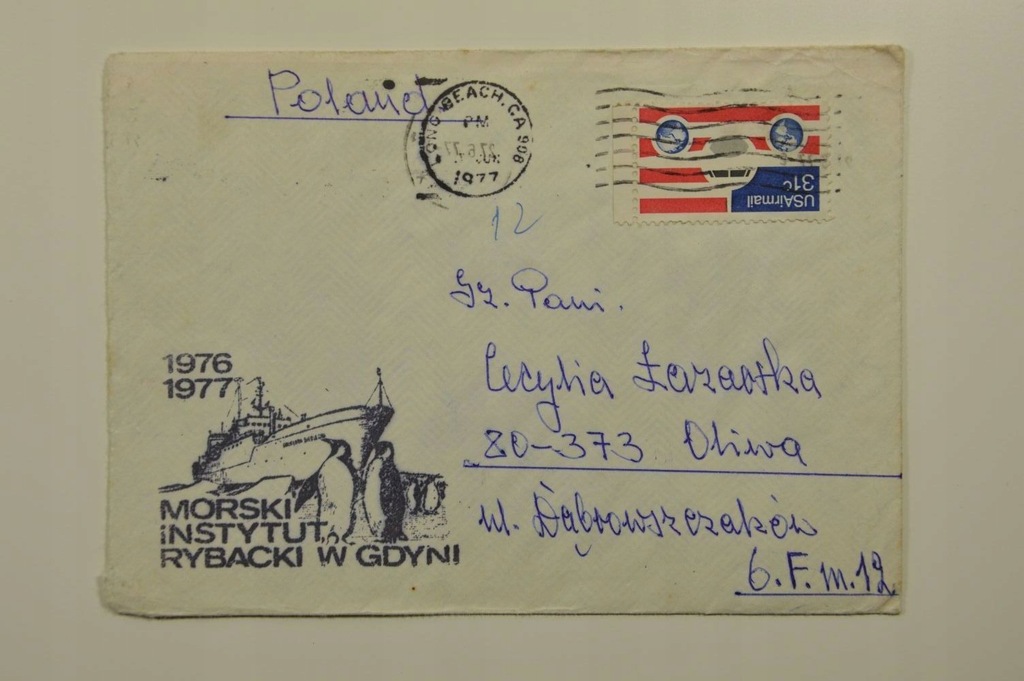 Poland
LONG BEACH, CA 908
PM
1977
USAirmail
31c
12
Sz. Pani.
Cecylia Łazarska
80-373 Oliwa
ul. Dąbrowszczaków
6.F.m.12
1976
1977
MORSKI
INSTYTUT
RYBACKI W GDYNI